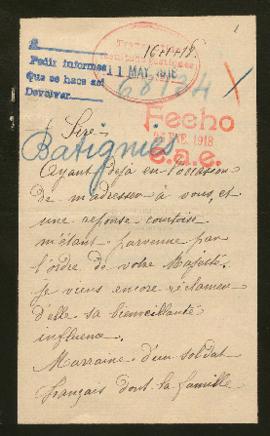 1
16-1-18.
Pedir informes
Que se hace así
Devolver
11 MAY. 1918
68184
Fecho
ENE. 1918
e.a.e.
Sire
Batignies
Ayant déjà eu l'occasion
de m'adresser à vous, et
une réponse courtoise
m'étant parvenue par
l'ordre de votre Majesté.
Je viens encore réclamer
d'elle sa bienveillante
influence.
Marraine d'un soldat
français dont la famille